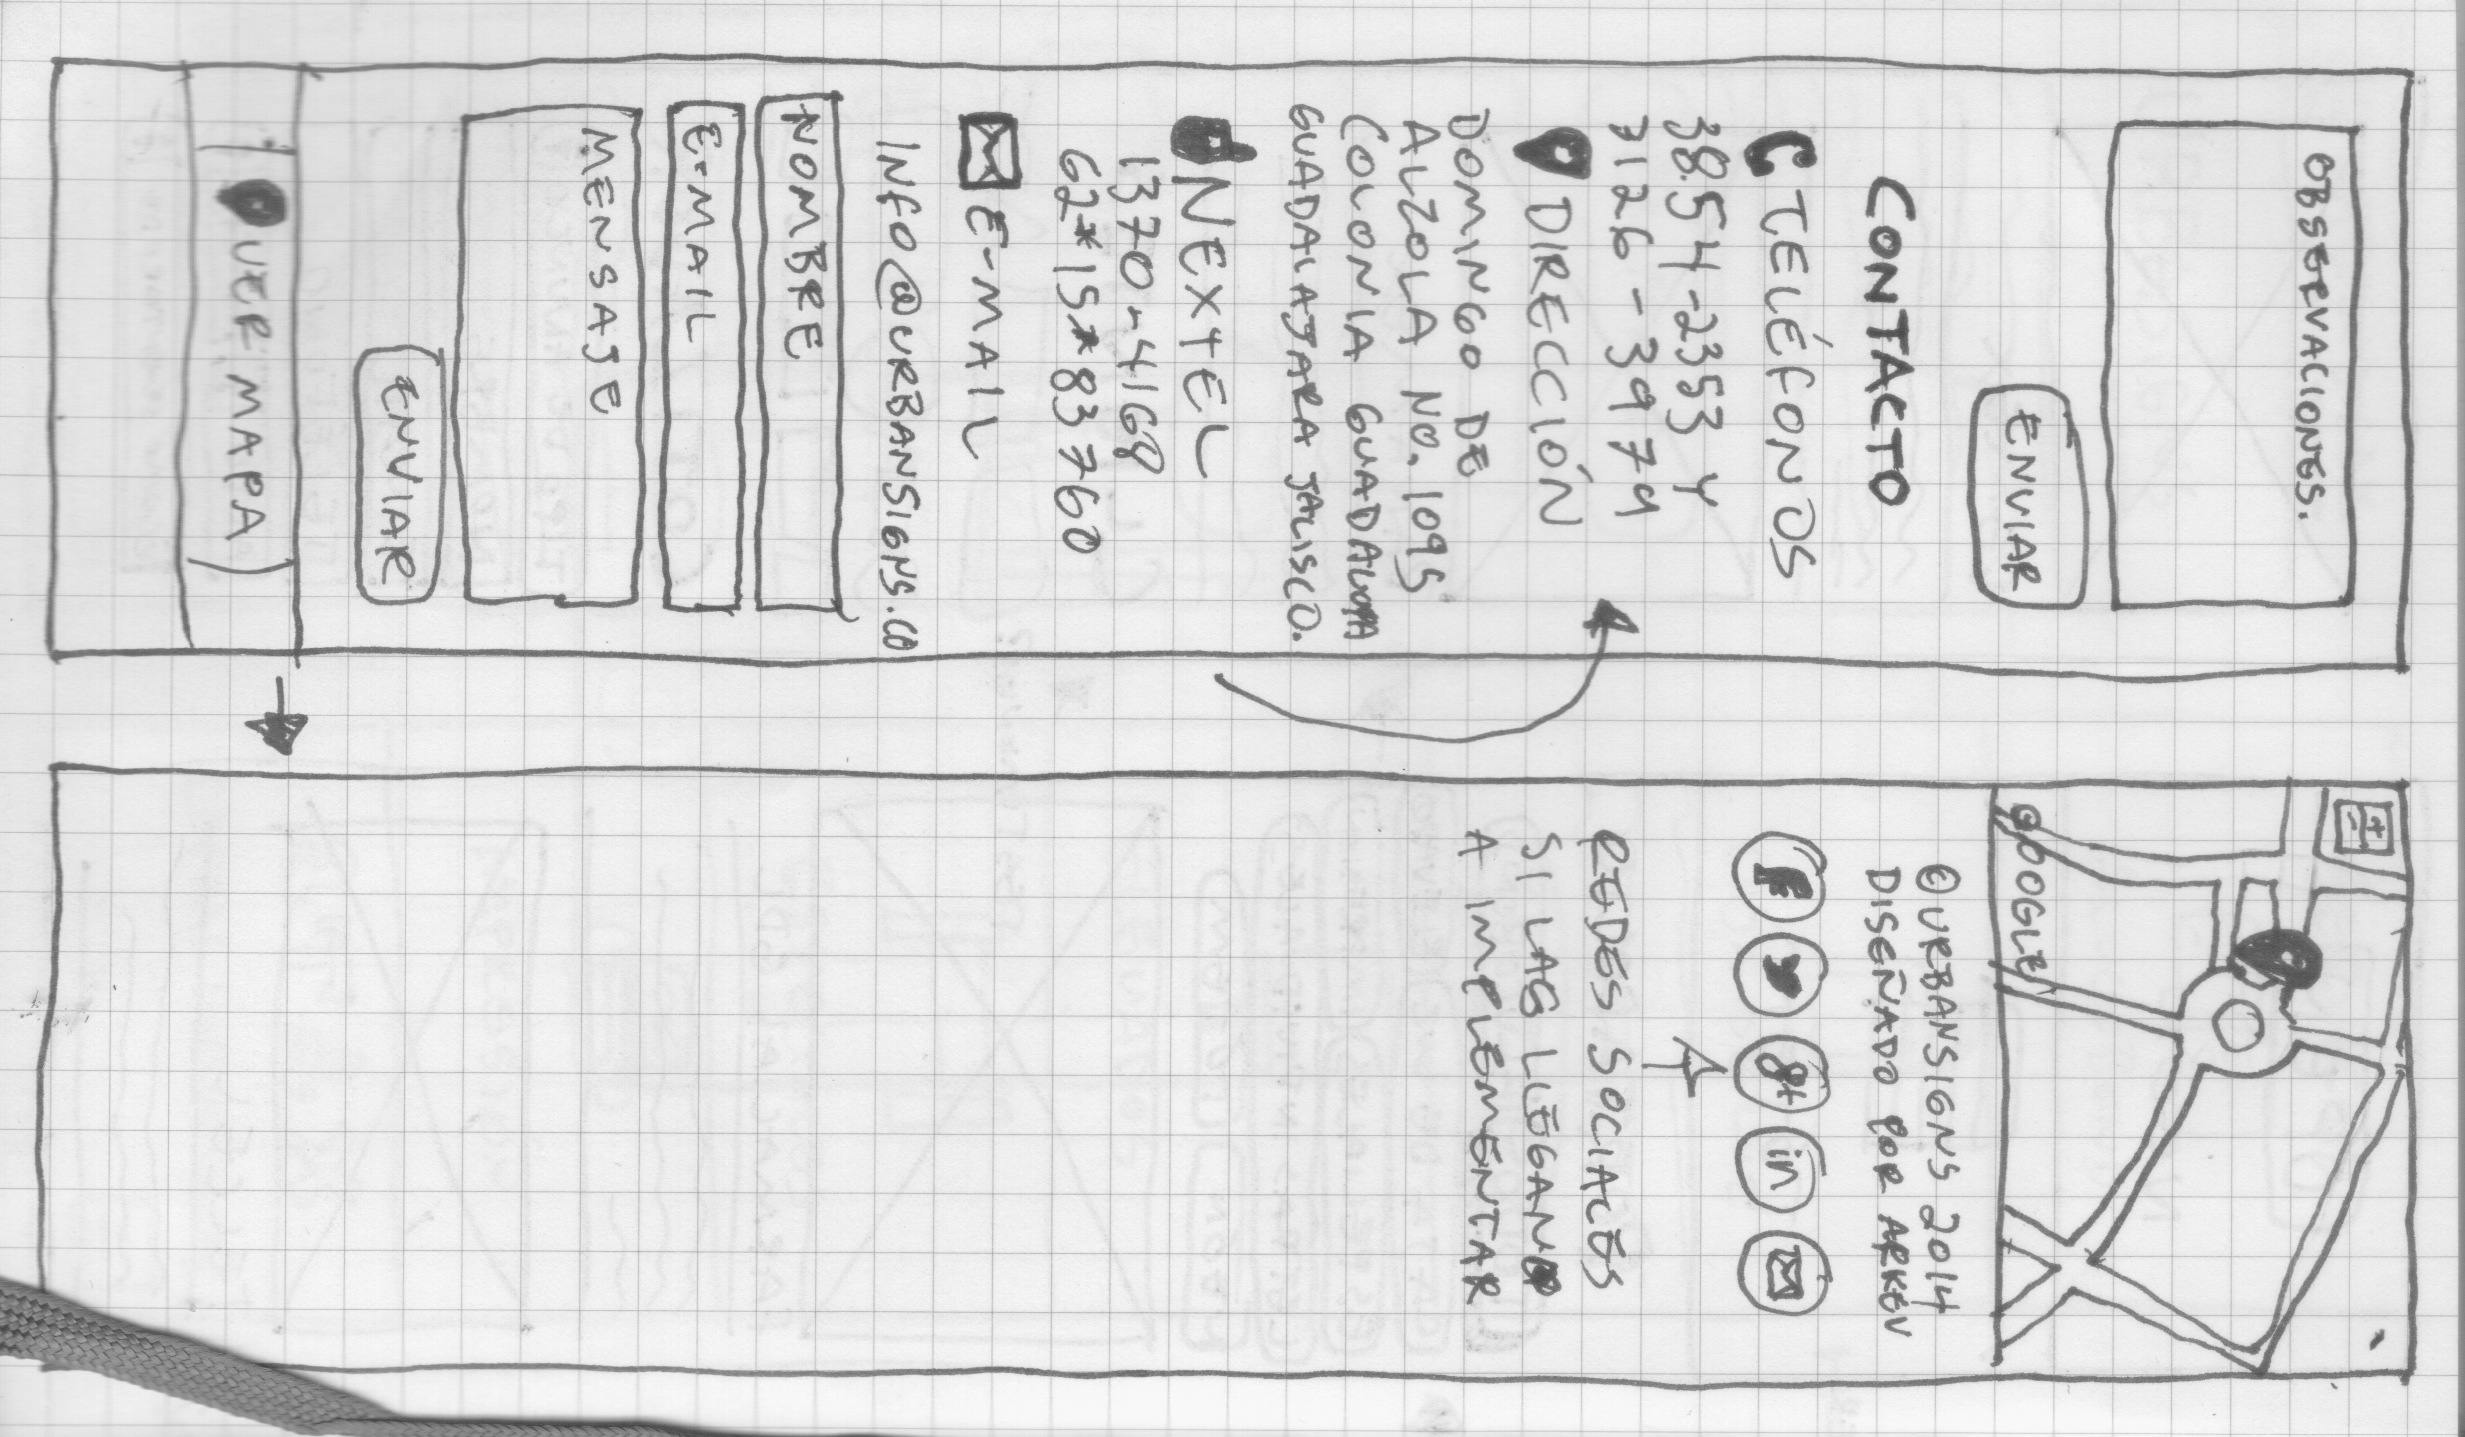 OBSERVACIONES.
ENVIAR
CONTACTO
TELÉFONOS
38.54-2353 Y
3126-3979
DIRECCIÓN
DOMINGO DE
ALZOLA NO. 1095
COLONIA GUADALUPA
GUADALAJARA JALISCO.
NEXTEL
1370-4168
62*15*83760
E-MAIL
INFO@URBANSIGNS.CO
NOMBRE
E-MAIL
MENSAJE
ENVIAR
VER MAPA
+
-
GOOGLE
©URBANSIGNS 2014
DISEÑADO POR ARKEV
f
g+
in
REDES SOCIALES
SI LAS LLEGAN
A IMPLEMENTAR